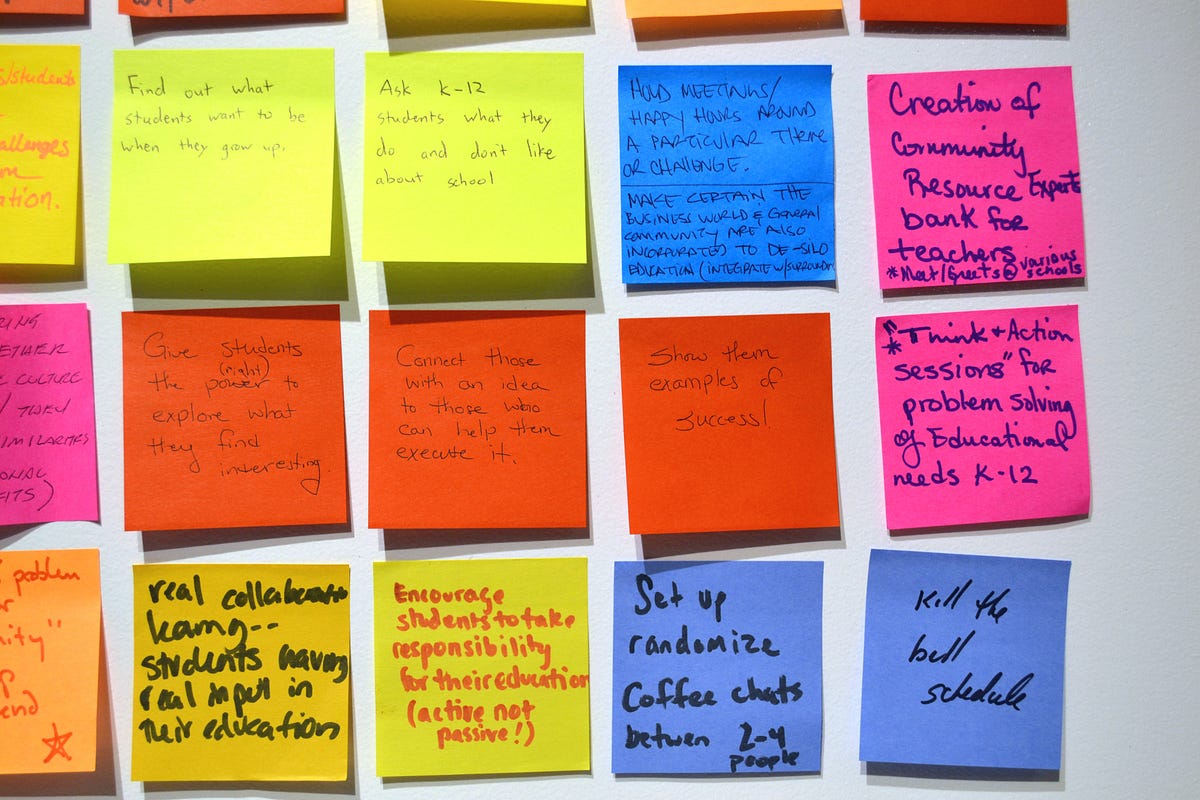 s/students
allenges
ation.
Find out what
students want to be
when they grow up.
Ask K-12
students what they
do and don't like
about school
HOLD MEETINGS/
HAPPY HOURS AROUND
A PARTICULAR THEME
OR CHALLENGE.
MAKE CERTAIN THE
BUSINESS WORLD & GENERAL
COMMUNITY ARE ALSO
INCORPORATED TO DE-SILO
EDUCATION (INTEGRATE W/SURROUND
Creation of
Community
Resource Experts
bank for
teachers
*Meet/Greets @ various
schools
RING
ETHER
CULTURE
IMILARITIES
ONAL
FITS)
Give students
(right)
the power to
explore what
they find
interesting.
Connect those
with an idea
to those who
can help them
execute it.
Show them
examples of
success!
*"Think + Action
sessions" for
problem solving
of Educational
needs K-12
problem
ity"
end
real collaboration
students having
real input in
their education
Encourage
students to take
responsibility
for their education
(active not
passive!)
Set up
randomize
Coffee chats
between 2-4
people
Kill the
bell
schedule